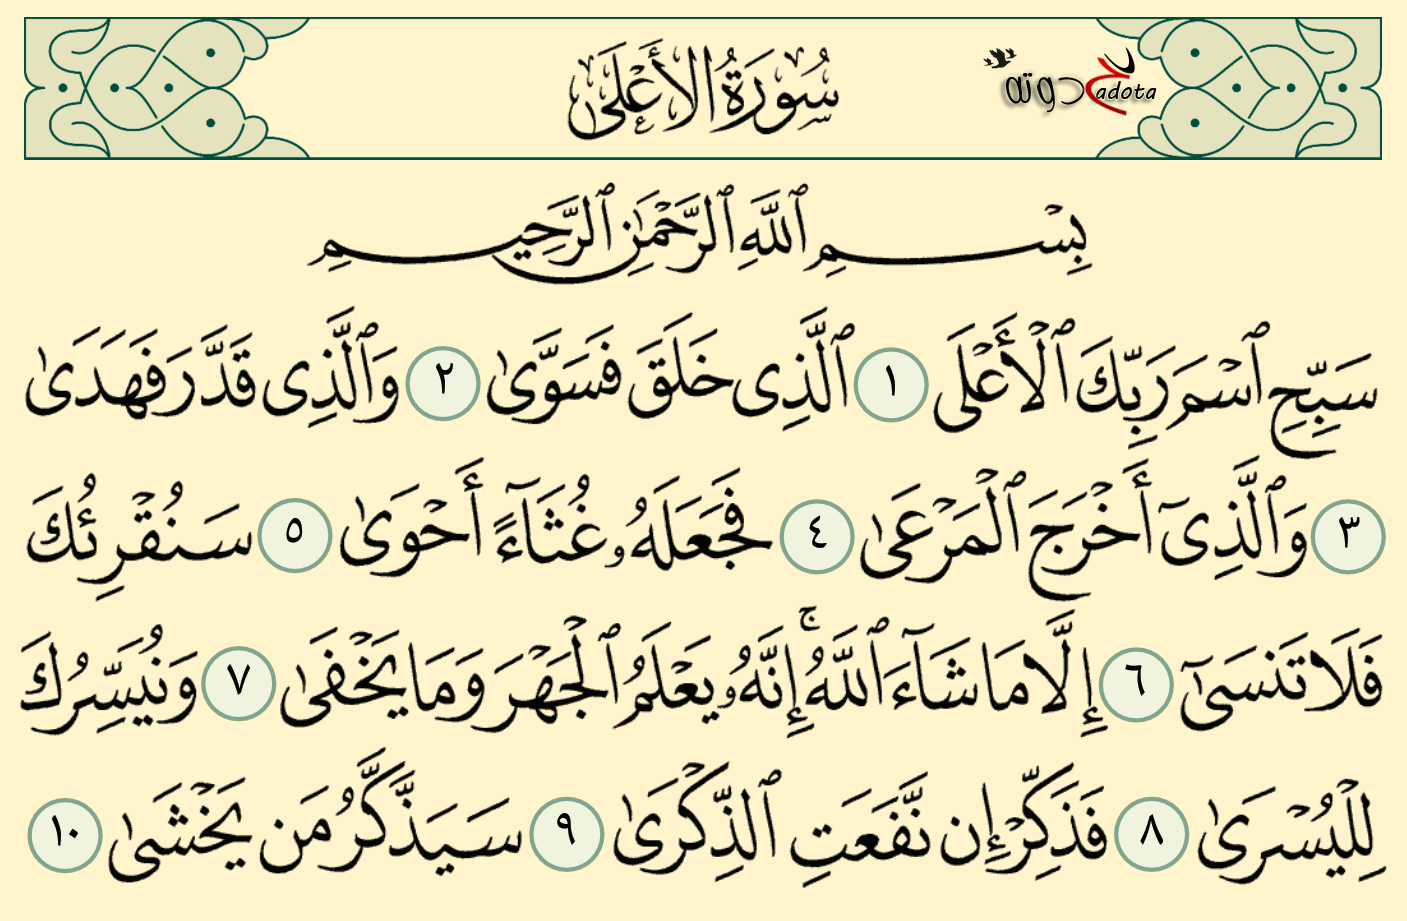 سُورَةُ الأَعْلَىٰ
حدوته
adota
بِسْمِ ٱللَّهِ ٱلرَّحْمَٰنِ ٱلرَّحِيمِ
سَبِّحِ ٱسْمَ رَبِّكَ ٱلْأَعْلَى ١ ٱلَّذِى خَلَقَ فَسَوَّىٰ ٢ وَٱلَّذِى قَدَّرَ فَهَدَىٰ
٣ وَٱلَّذِىٓ أَخْرَجَ ٱلْمَرْعَىٰ ٤ فَجَعَلَهُۥ غُثَآءً أَحْوَىٰ ٥ سَنُقْرِئُكَ
فَلَا تَنسَىٰٓ ٦ إِلَّا مَا شَآءَ ٱللَّهُ ۚ إِنَّهُۥ يَعْلَمُ ٱلْجَهْرَ وَمَا يَخْفَىٰ ٧ وَنُيَسِّرُكَ
لِلْيُسْرَىٰ ٨ فَذَكِّرْ إِن نَّفَعَتِ ٱلذِّكْرَىٰ ٩ سَيَذَّكَّرُ مَن يَخْشَىٰ ١٠